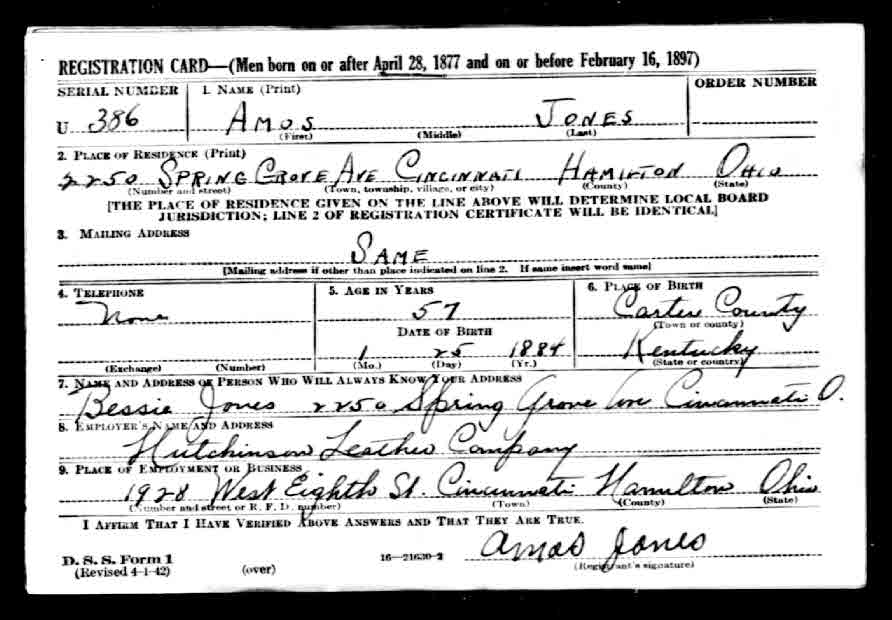 REGISTRATION CARD—(Men born on or after April 28, 1877 and on or before February 16, 1897)
SERIAL NUMBER 1. NAME (Print) ORDER NUMBER
U 386 AMOS JONES
(First) (Middle) (Last)
2. PLACE OF RESIDENCE (Print)
2250 SPRING GROVE AVE CINCINNATI HAMILTON OHIO
(Number and street) (Town, township, village, or city) (County) (State)
[THE PLACE OF RESIDENCE GIVEN ON THE LINE ABOVE WILL DETERMINE LOCAL BOARD
JURISDICTION; LINE 2 OF REGISTRATION CERTIFICATE WILL BE IDENTICAL]
3. MAILING ADDRESS
SAME
[Mailing address if other than place indicated on line 2. If same insert word same]
4. TELEPHONE 5. AGE IN YEARS 6. PLACE OF BIRTH
None 57 Carter County
(Town or county)
DATE OF BIRTH
1 25 1884 Kentucky
(Exchange) (Number) (Mo.) (Day) (Yr.) (State or country)
7. NAME AND ADDRESS OF PERSON WHO WILL ALWAYS KNOW YOUR ADDRESS
Bessie Jones 2250 Spring Grove Ave Cincinnati O.
8. EMPLOYER'S NAME AND ADDRESS
Hutchinson Leather Company
9. PLACE OF EMPLOYMENT OR BUSINESS
1928 West Eighth St. Cincinnati Hamilton Ohio
(Number and street or R. F. D. number) (Town) (County) (State)
I AFFIRM THAT I HAVE VERIFIED ABOVE ANSWERS AND THAT THEY ARE TRUE.
D. S. S. Form 1 16—21630-2 Amos Jones
(Revised 4-1-42) (over) (Registrant's signature)